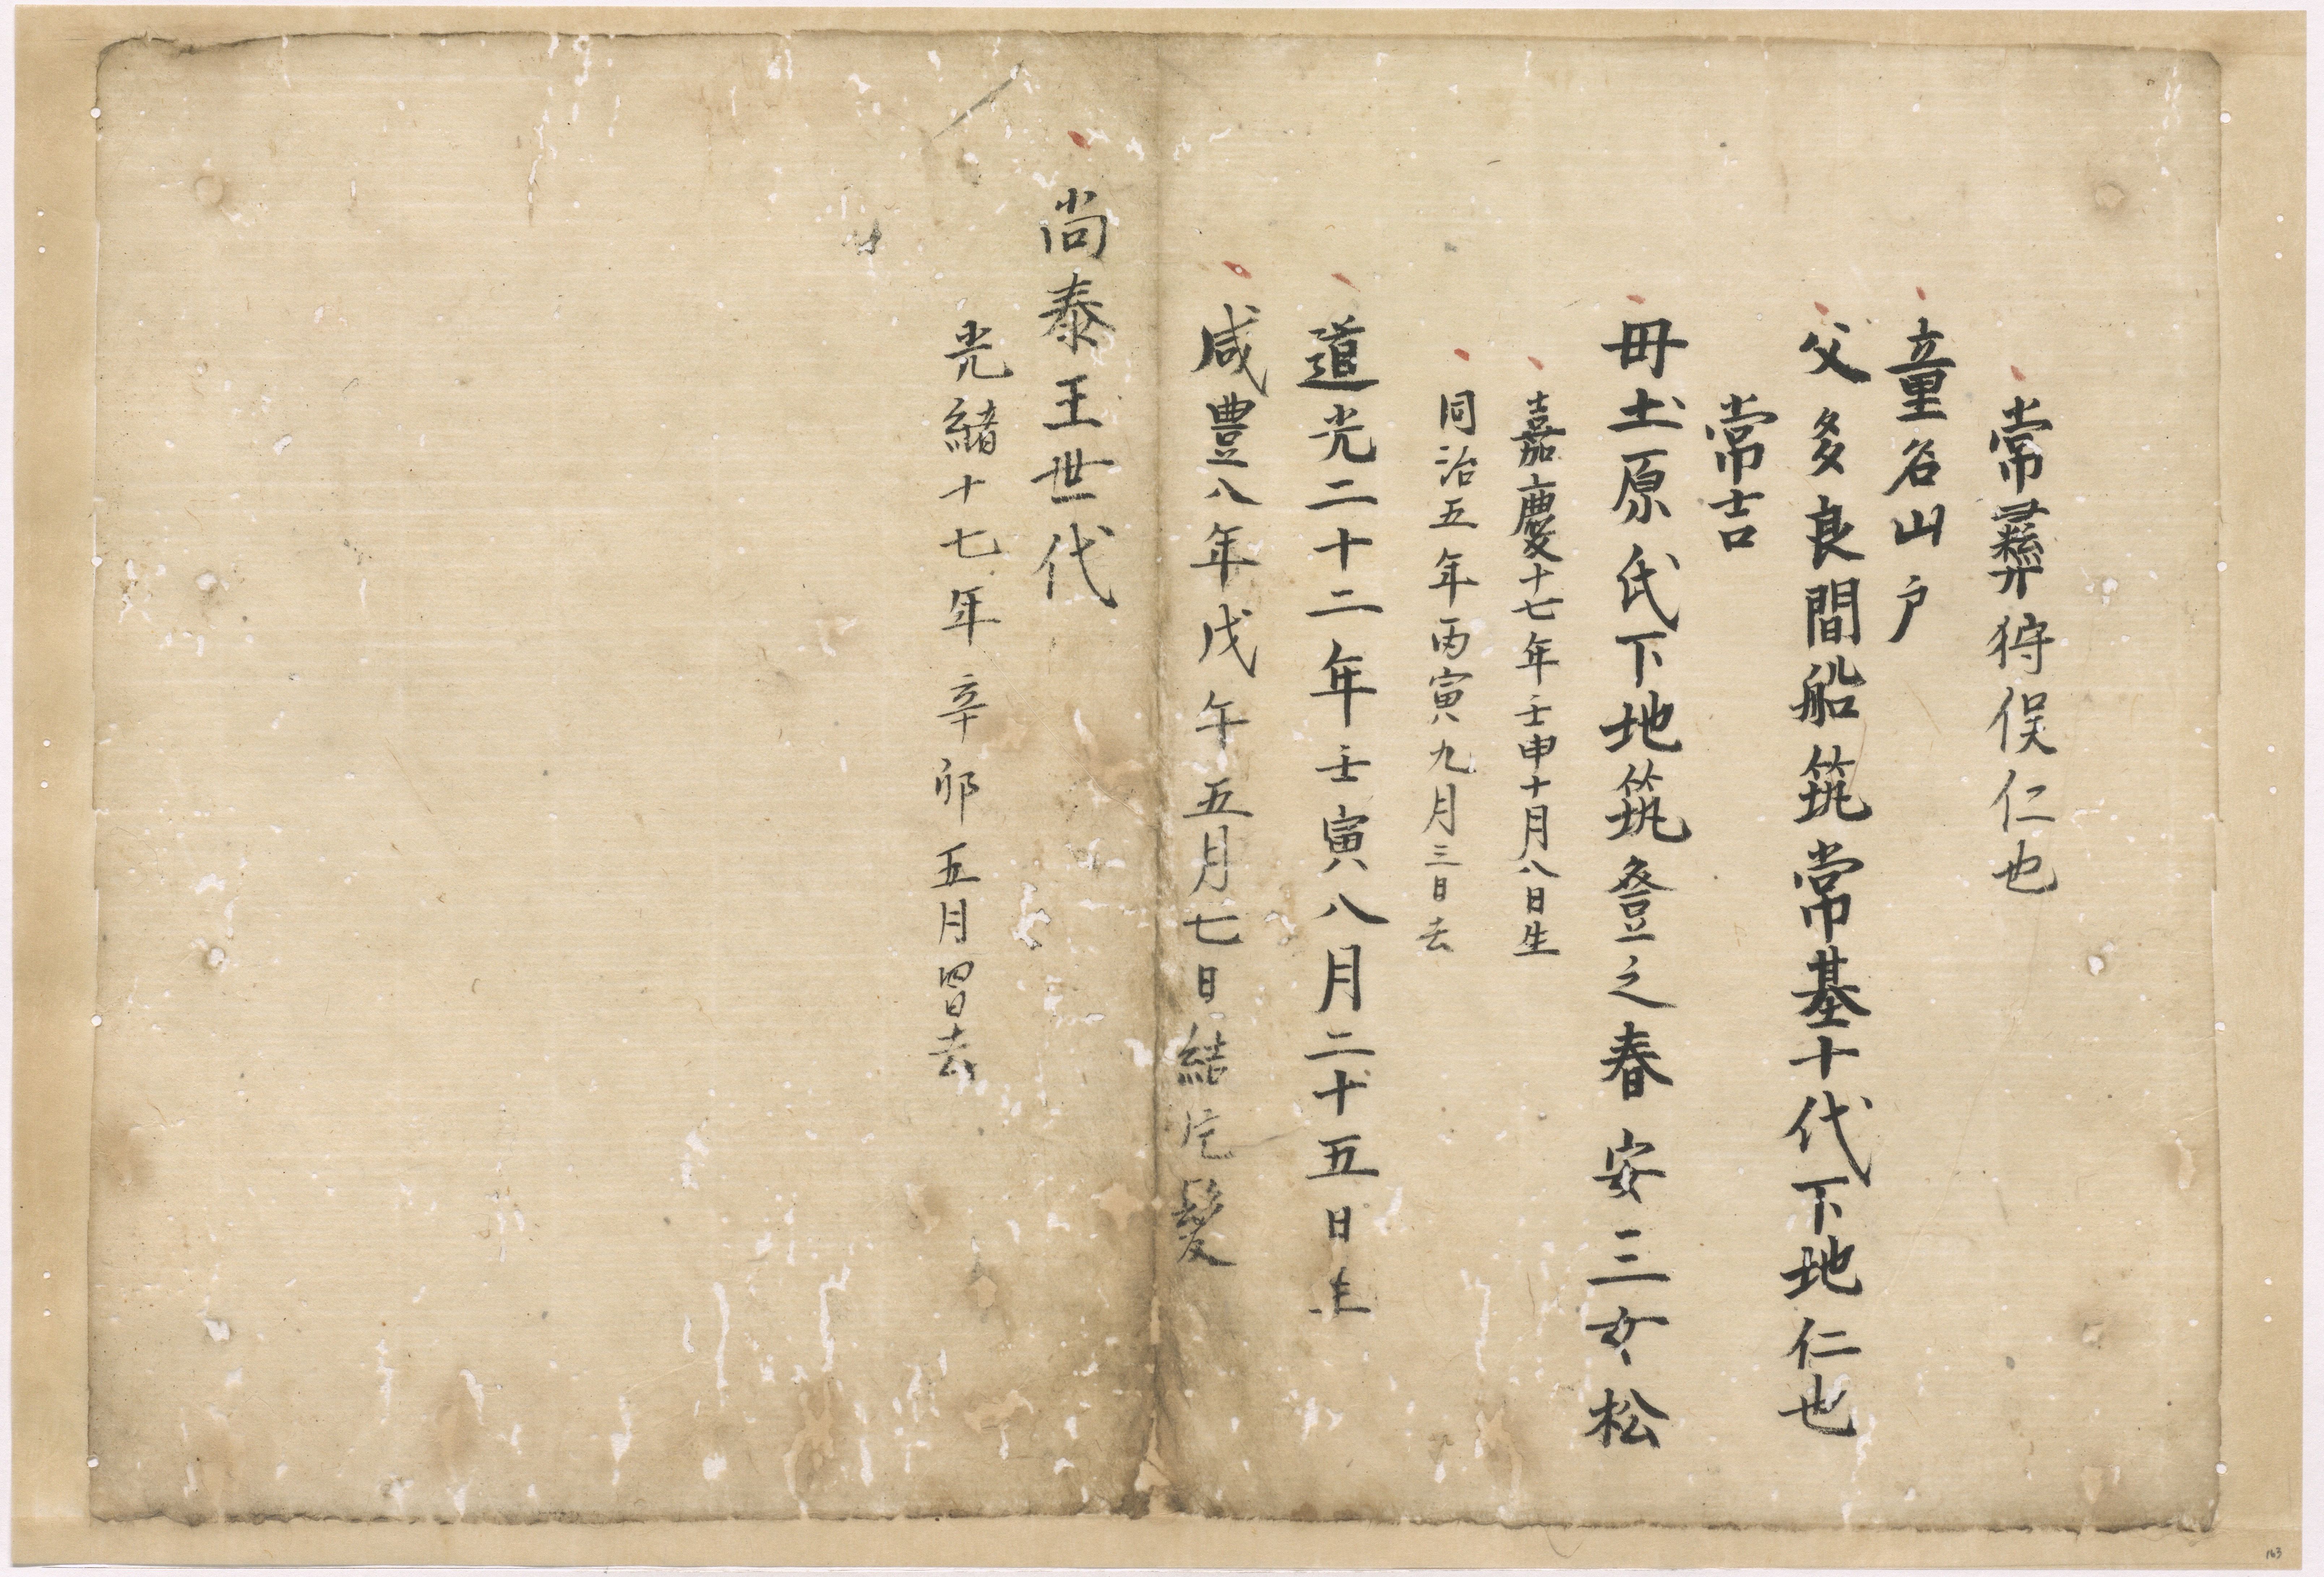 常彛狩俣仁也
童名山户
父多良間船筑常基十代下地仁也
常吉
毋土原氏下地筑登之春安三女松
嘉慶十七年壬申十月八日生
同治五年丙寅九月三日去
道光二十二年壬寅八月二十五日生
咸豊八年戊午五月七日結片髪
尚泰王世代
光緒十七年辛卯五月四日去
163